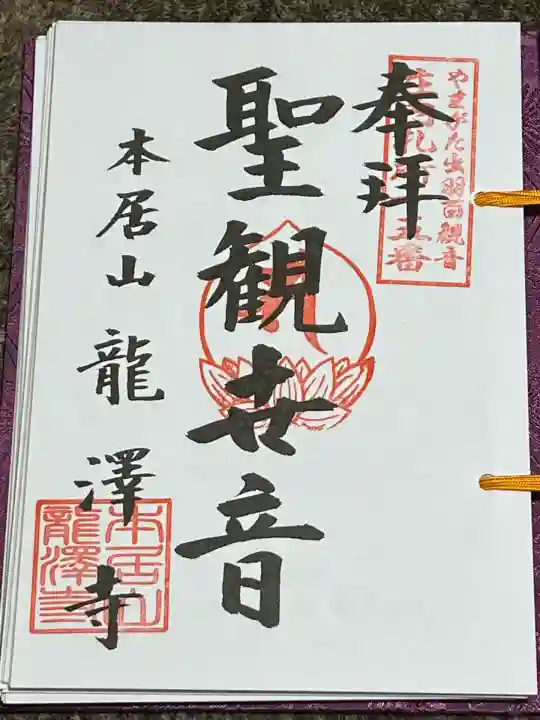 やまがた出羽百観音
奉拝
聖観世音
本居山龍澤寺
本居山
龍澤寺